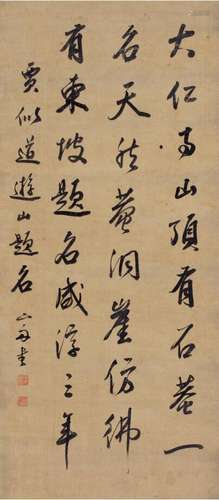 大仁寺山頂有石菴一
名天然菴洞崖仿佛
有東坡題名咸淳三年
賈似道遊山題名
書